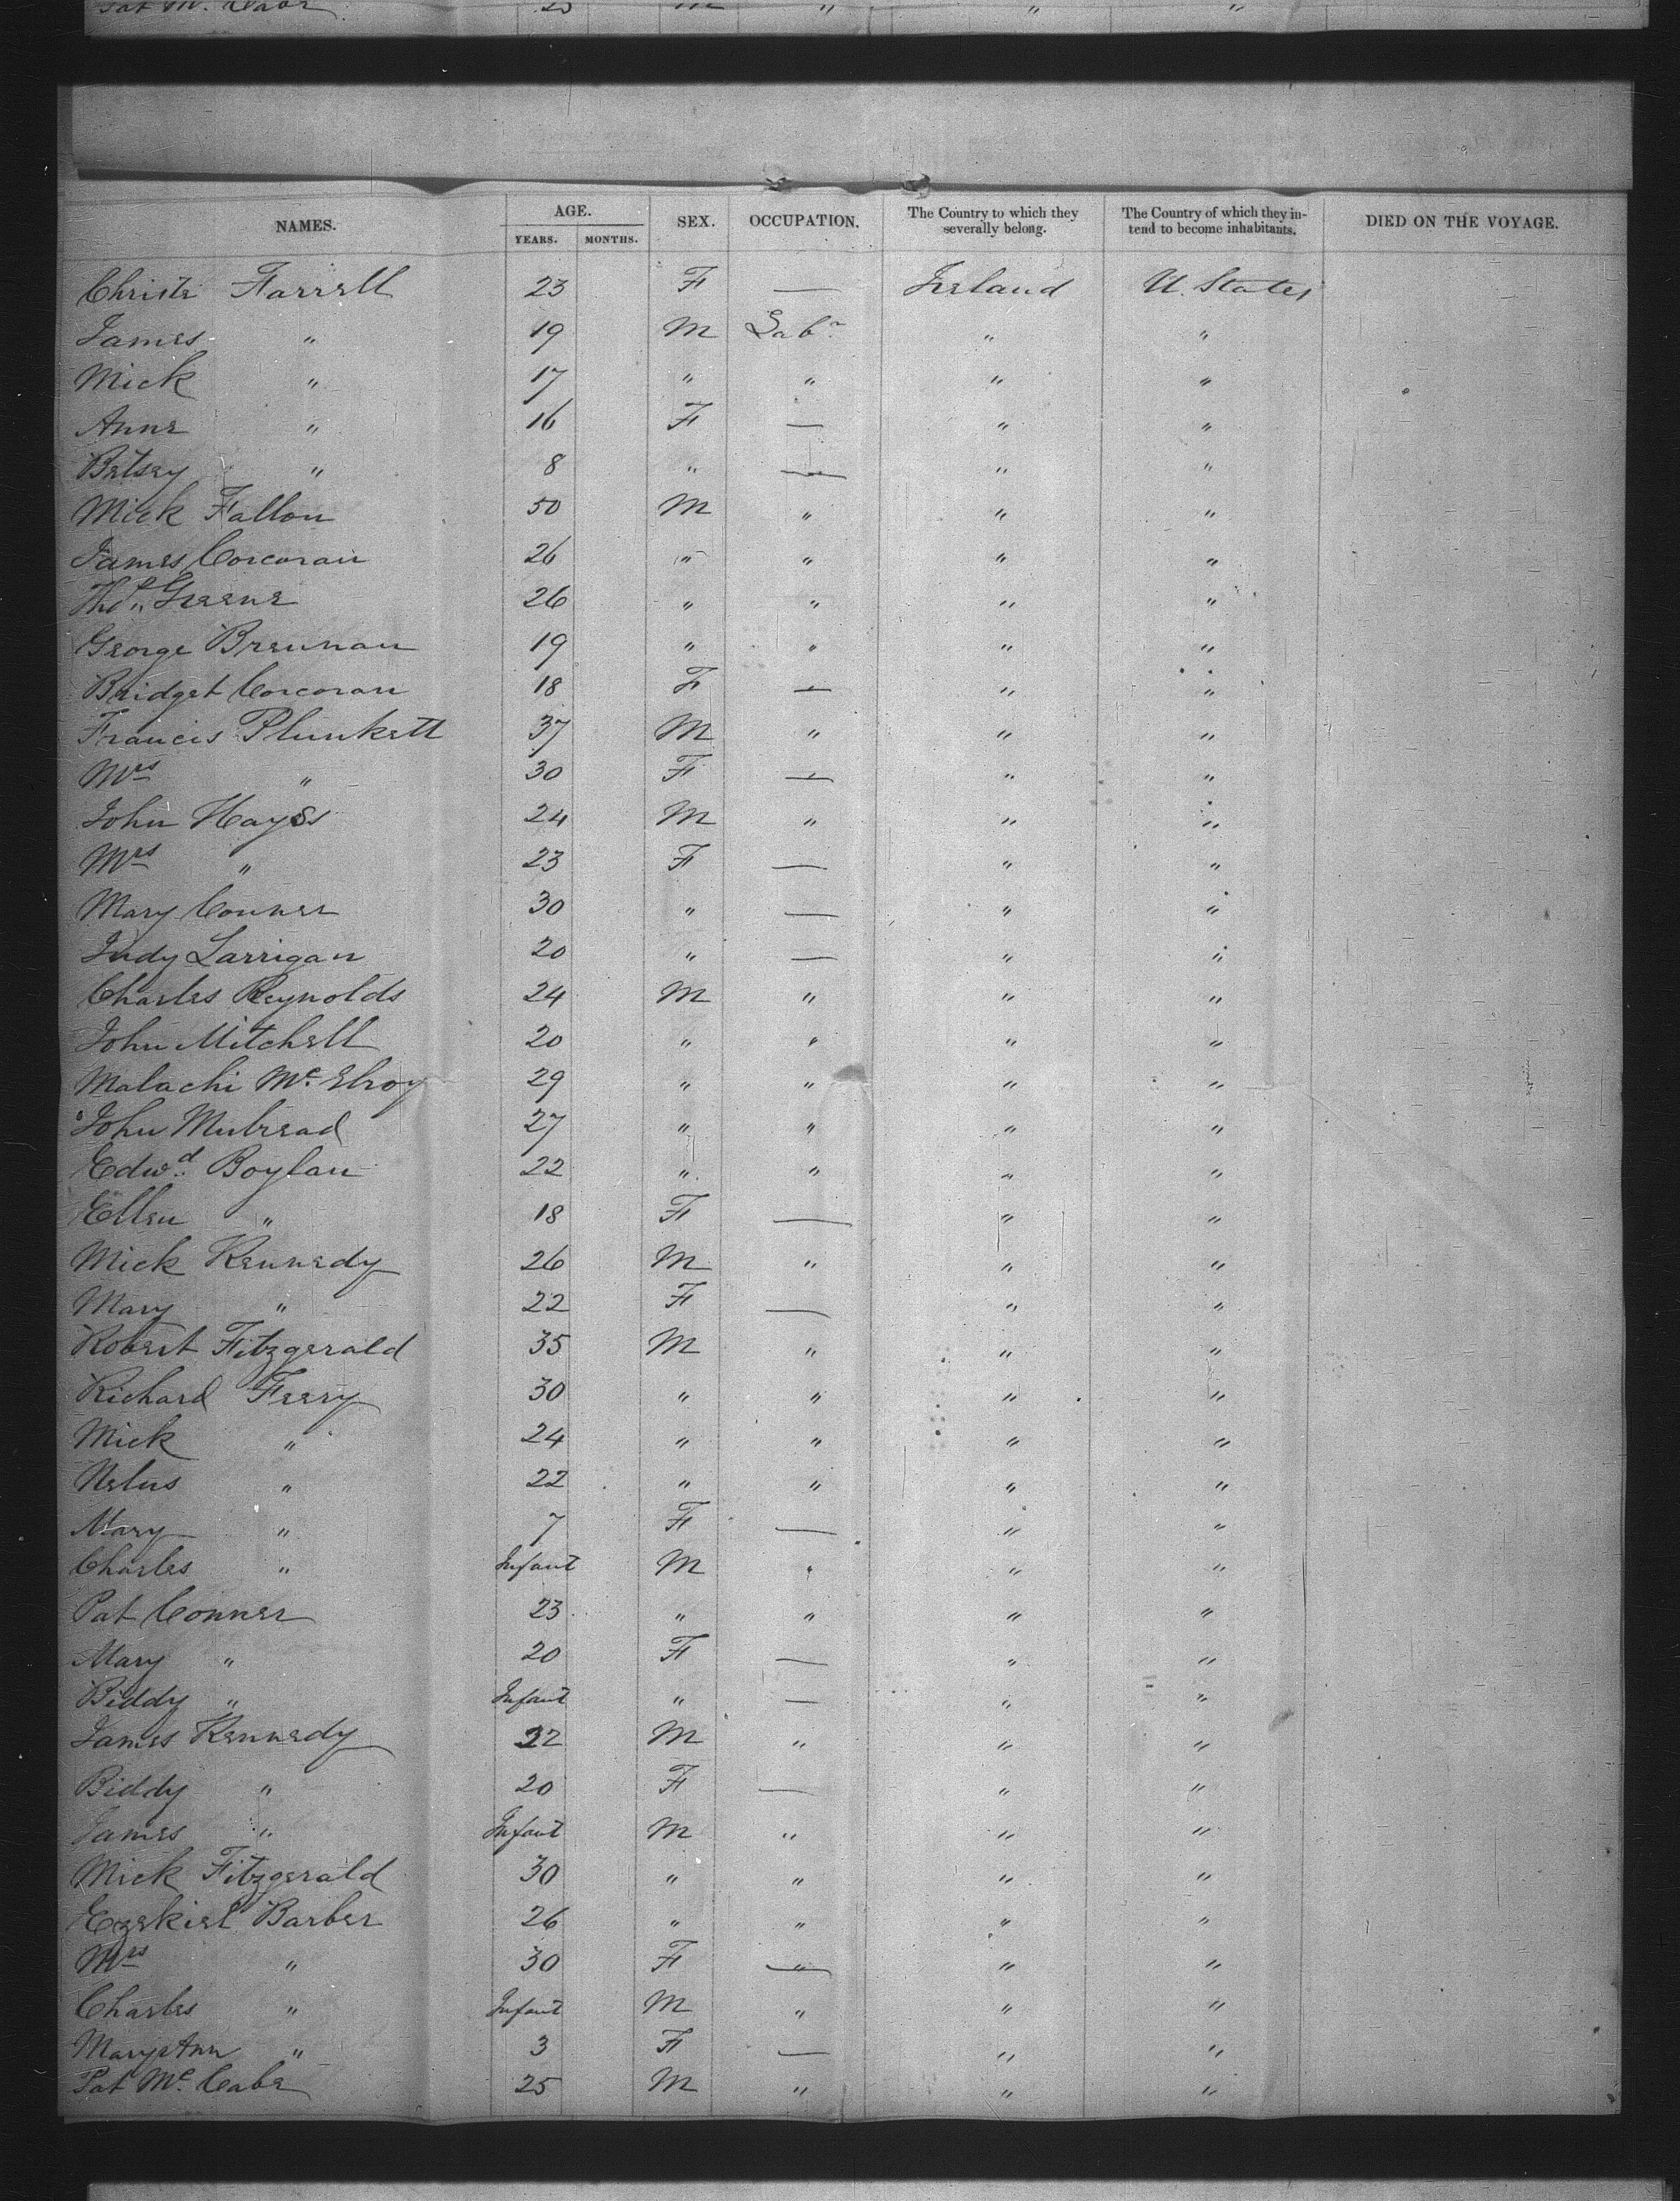 Pat Mc. Cabe 25 M " " "
NAMES. AGE. SEX. OCCUPATION. The Country to which they severally belong. The Country of which they in-tend to become inhabitants. DIED ON THE VOYAGE.
YEARS. MONTHS.
Christe Farrell 23 F — Ireland U. States
James " 19 M Labr " "
Mick " 17 " " " "
Anne " 16 F — " "
Betsey " 8 " — " "
Mick Fallon 50 M " " "
James Corcoran 26 " " " "
Thos Greene 26 " " " "
George Brennan 19 " " " "
Bridget Corcoran 18 F — " "
Francis Plunkett 37 M " " "
Mrs " 30 F — " "
John Hayes 24 M " " "
Mrs " 23 F — " "
Mary Conner 30 " — " "
Judy Larrigan 20 " — " "
Charles Reynolds 24 M " " "
John Mitchell 20 " " " "
Malachi Mc. Elroy 29 " " " "
John Mulread 27 " " " "
Edwd. Boylan 22 " " " "
Ellen " 18 F — " "
Mick Kennedy 26 M " " "
Mary " 22 F — " "
Robert Fitzgerald 35 M " " "
Richard Feery 30 " " " "
Mick " 24 " " " "
Nelus " 22 " " " "
Mary " 7 F — " "
Charles " Infant M " " "
Pat Conner 23 " " " "
Mary " 20 F — " "
Biddy " Infant " — " "
James Kennedy 22 M " " "
Biddy " 20 F — " "
James " Infant M " " "
Mick Fitzgerald 30 " " " "
Ezekiel Barber 26 " " " "
Mrs " 30 F — " "
Charles " Infant M " " "
Mary Ann " 3 F — " "
Pat Mc. Cabe 25 M " " "